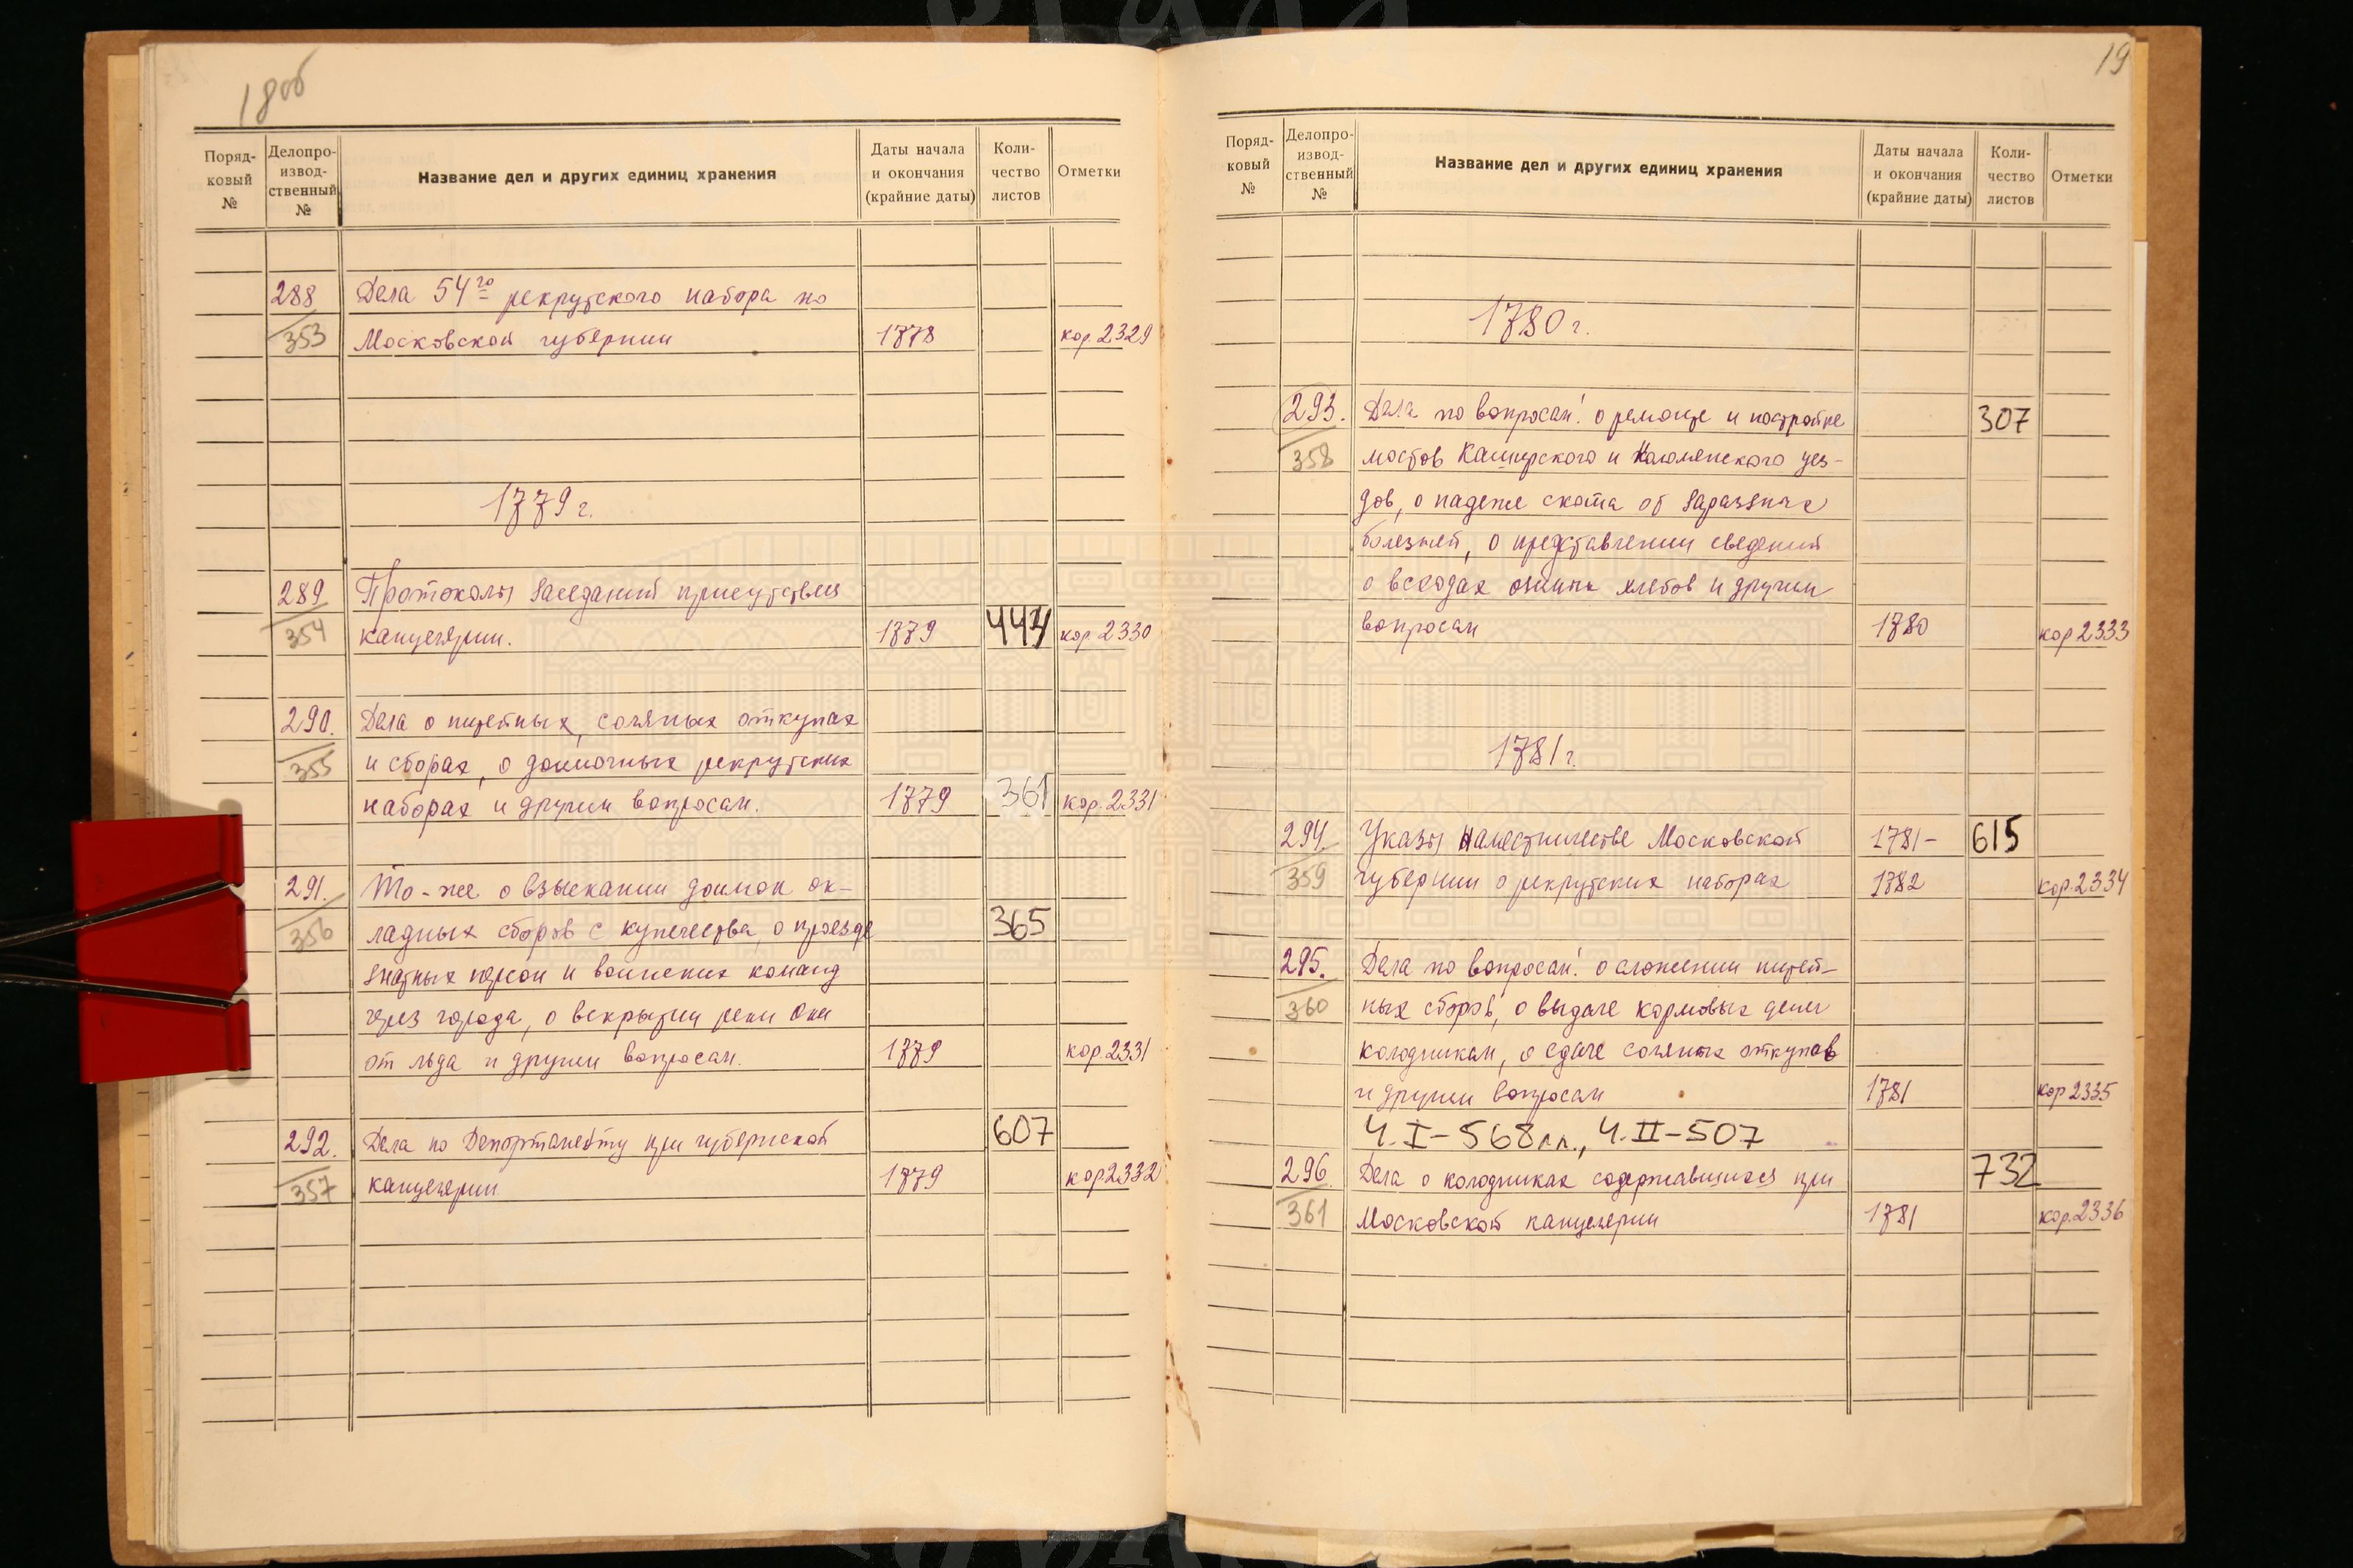 18об
Поряд-
ковый
№
Делопро-
извод-
ственный
№
Название дел и других единиц хранения
Даты начала
и окончания
(крайние даты)
Коли-
чество
листов
Отметки
288 Дела 54го рекрутского набора по
353 Московской губернии 1778 кор. 2329
1779 г.
289 Протоколы заседаний присутствия
354 канцелярии. 1779 кор. 2330
290. Дела о питейных, соляных откупах
355 и сборах, о доимочных рекрутских
наборах и другим вопросам. 1779 361 кор. 2331
291. То-же о взыскании доимок ок-
356 ладных сборов с купечества, о проезде 365
знатных персон и воинских команд
через города, о вскрытии реки Оки
от льда и другим вопросам. 1779 кор. 2331
292. Дела по Департаменту при губернской 607
357 канцелярии 1779 кор 2332
19
Поряд-
ковый
№
Делопро-
извод-
ственный
№
Название дел и других единиц хранения
Даты начала
и окончания
(крайние даты)
Коли-
чество
листов
Отметки
1780 г.
293. Дела по вопросам: о ремонте и постройке 307
358 мостов Каширского и Коломенского уез-
дов, о падеже скота от заразных
болезней, о представлении сведений
о всходах озимых хлебов и другим
вопросам 1780 кор 2333
1781 г.
294. Указы Наместничестве Московской 1781- 615
359 губернии о рекрутских наборах 1782 кор. 2334
295. Дела по вопросам: о сложении питей-
360 ных сборов, о выдаче кормовых денег
колодникам, о сдаче соляных откупов
и другим вопросам 1781 кор 2335
Ч. I-568 лл., Ч. II-507
296. Дела о колодниках содержавшихся при 732
361 Московской канцелярии 1781 кор. 2336